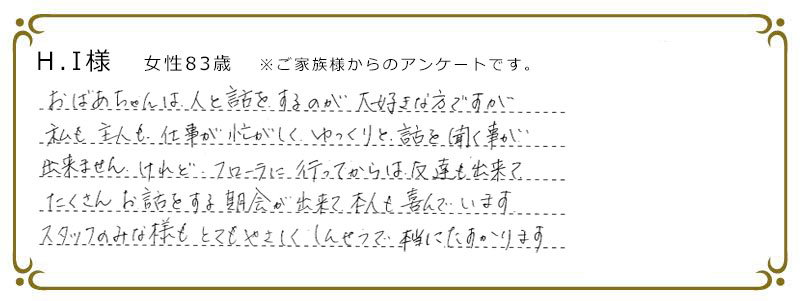 H.I様 女性83歳 ※ご家族様からのアンケートです。
おばあちゃんは人と話をするのが大好きな方ですが
私も主人も仕事が忙がしくゆっくりと話を聞く事が
出来ません けれど フローラに行ってからは友達も出来て
たくさんお話をする期会が出来て本人も喜んでいます
スタッフのみな様もとてもやさしくしんせつで本当にたすかります